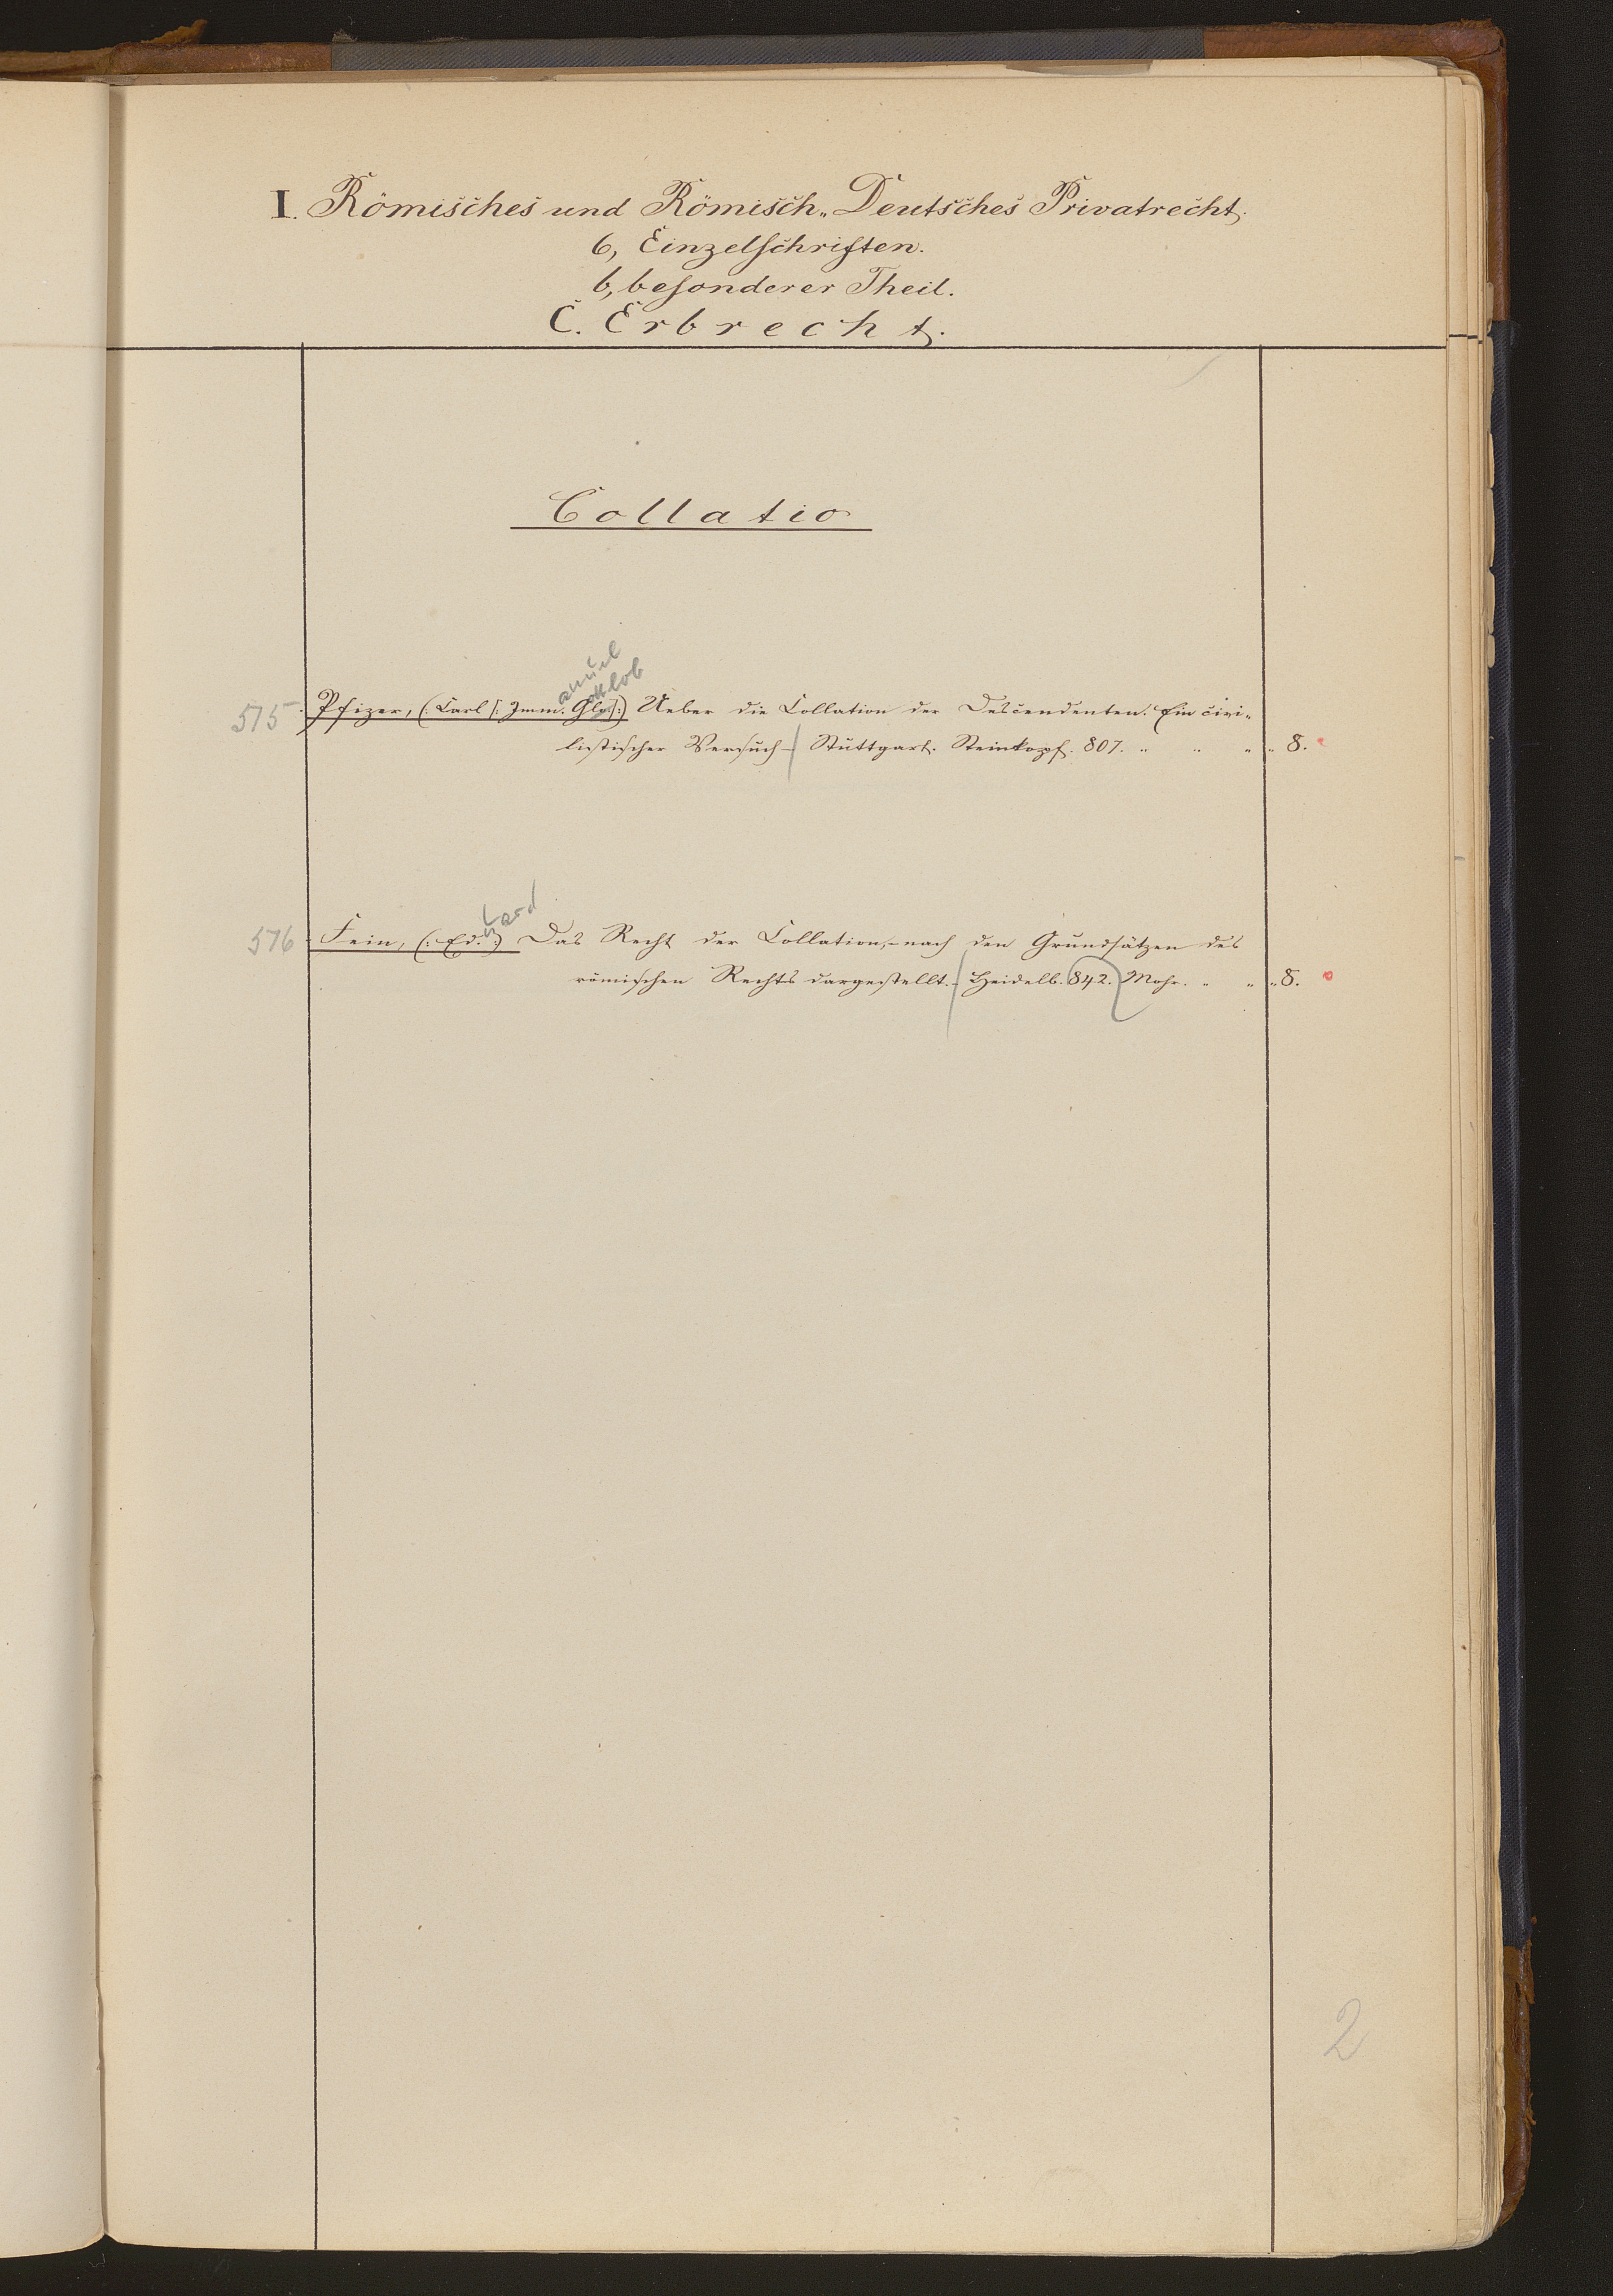 I. Römisches und Römisch-Deutsches Privatrecht.
6, Einzelschriften.
b, besonderer Theil.
C. Erbrecht.
Collatio
anuel
ottlob
515. Pfizer, (: Carl [: Imm. Glo. :]) Ueber die Collation der Descendenten. Ein civi-
listischer Versuch - Stuttgart. Steinkopf. 807. " " " " 8.
uard
516 Fein, (: Ed. :) Das Recht der Collation, - nach den Grundsätzen des
römischen Rechts dargestellt. - Heidelb. 842. Mohr. " " " 8.
2